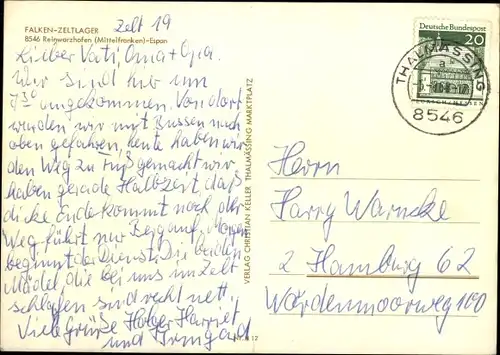 Zelt 19
FALKEN-ZELTLAGER
8546 Reinwarzhofen (Mittelfranken)-Espan
Lieber Vati, Oma + Opa.
Wir sind hib um
7³⁰ angekommen. Von dort
wurden wir mit Bussen nach
oben gefahren, heute haben wir
den Weg zu Fuß gemacht wir
haben gerade Halbzeit, das
dicke Ende kommt noch der
Weg führt nur Bergauf, Morgen
beginnt der Dienst, Die beiden
Mädel die bei uns im Zelt
schlafen sind recht nett.
Viele Grüße Holger Harriet
und Irmgad
VERLAG CHRISTIAN KELLER THALMÄSSING MARKTPLATZ
12
Deutsche Bundespost
20
THALMÄSSING
a
8546
Herrn
Harry Warncke
2 Hamburg 62
Wördenmoorweg 100